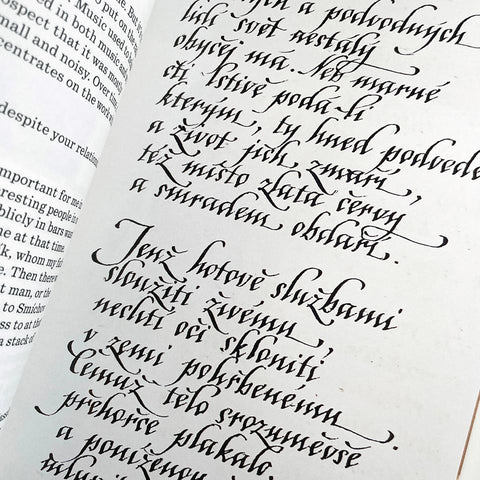 years. But
. Music used to
to put on the
ospect that it was mostly
mall and noisy. Over time
centrates on the work
despite your relations
mportant for me is
eresting people in
blicly in bars was
ne at that time
k, whom my
e. Then there
t man, or the
to Smíchov
ss to at that
a stack of
a podvodných
lidí svět nestálý
obyčej má. Neb marné
cti lstivě podá-li
kterým, ty hned podvede
a život jich zmaří,
též místo zlata červy
a smradem obdaří.
Jenž hotově službami
sloužiti živému,
nechtí očí skloniti
v zemi pohřbenému.
Lemuž tělo srozuměvše
přehořce plakalo,
a poníženou